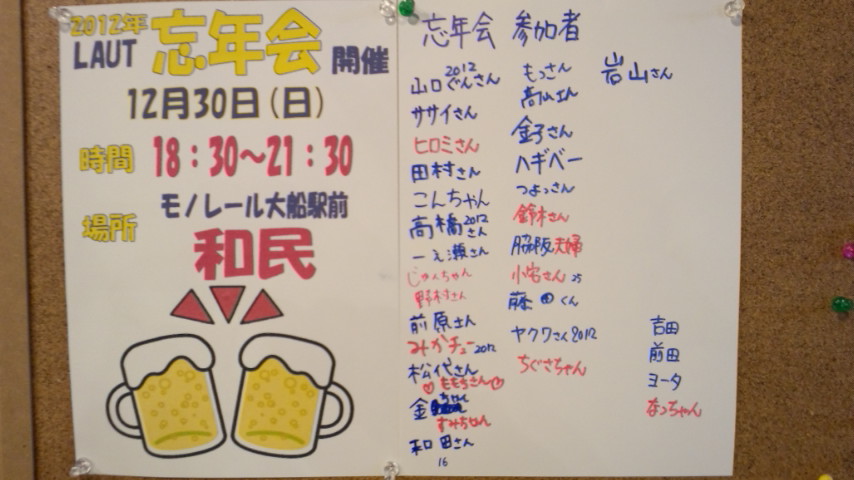 2012年
LAUT 忘年会 開催
12月30日(日)
時間 18：30～21：30
場所 モノレール大船駅前
和民
忘年会 参加者
山口ぐんさん 2012
ササイさん
ヒロミさん
田村さん
こんちゃん
高橋さん 2012
一ノ瀬さん
じゅんちゃん
野村さん
前原さん
みかチュー 2012
松代さん
♡ももちさん♡
金 ちゃん
すみちゃん
和田さん
16
もっさん
高山さん
金子さん
ハギベー
つよっさん
鈴木さん
脇阪夫婦
小宮さん 25
藤田くん
ヤクワさん 2012
ちぐさちゃん
岩山さん
吉田
前田
ヨータ
なっちゃん